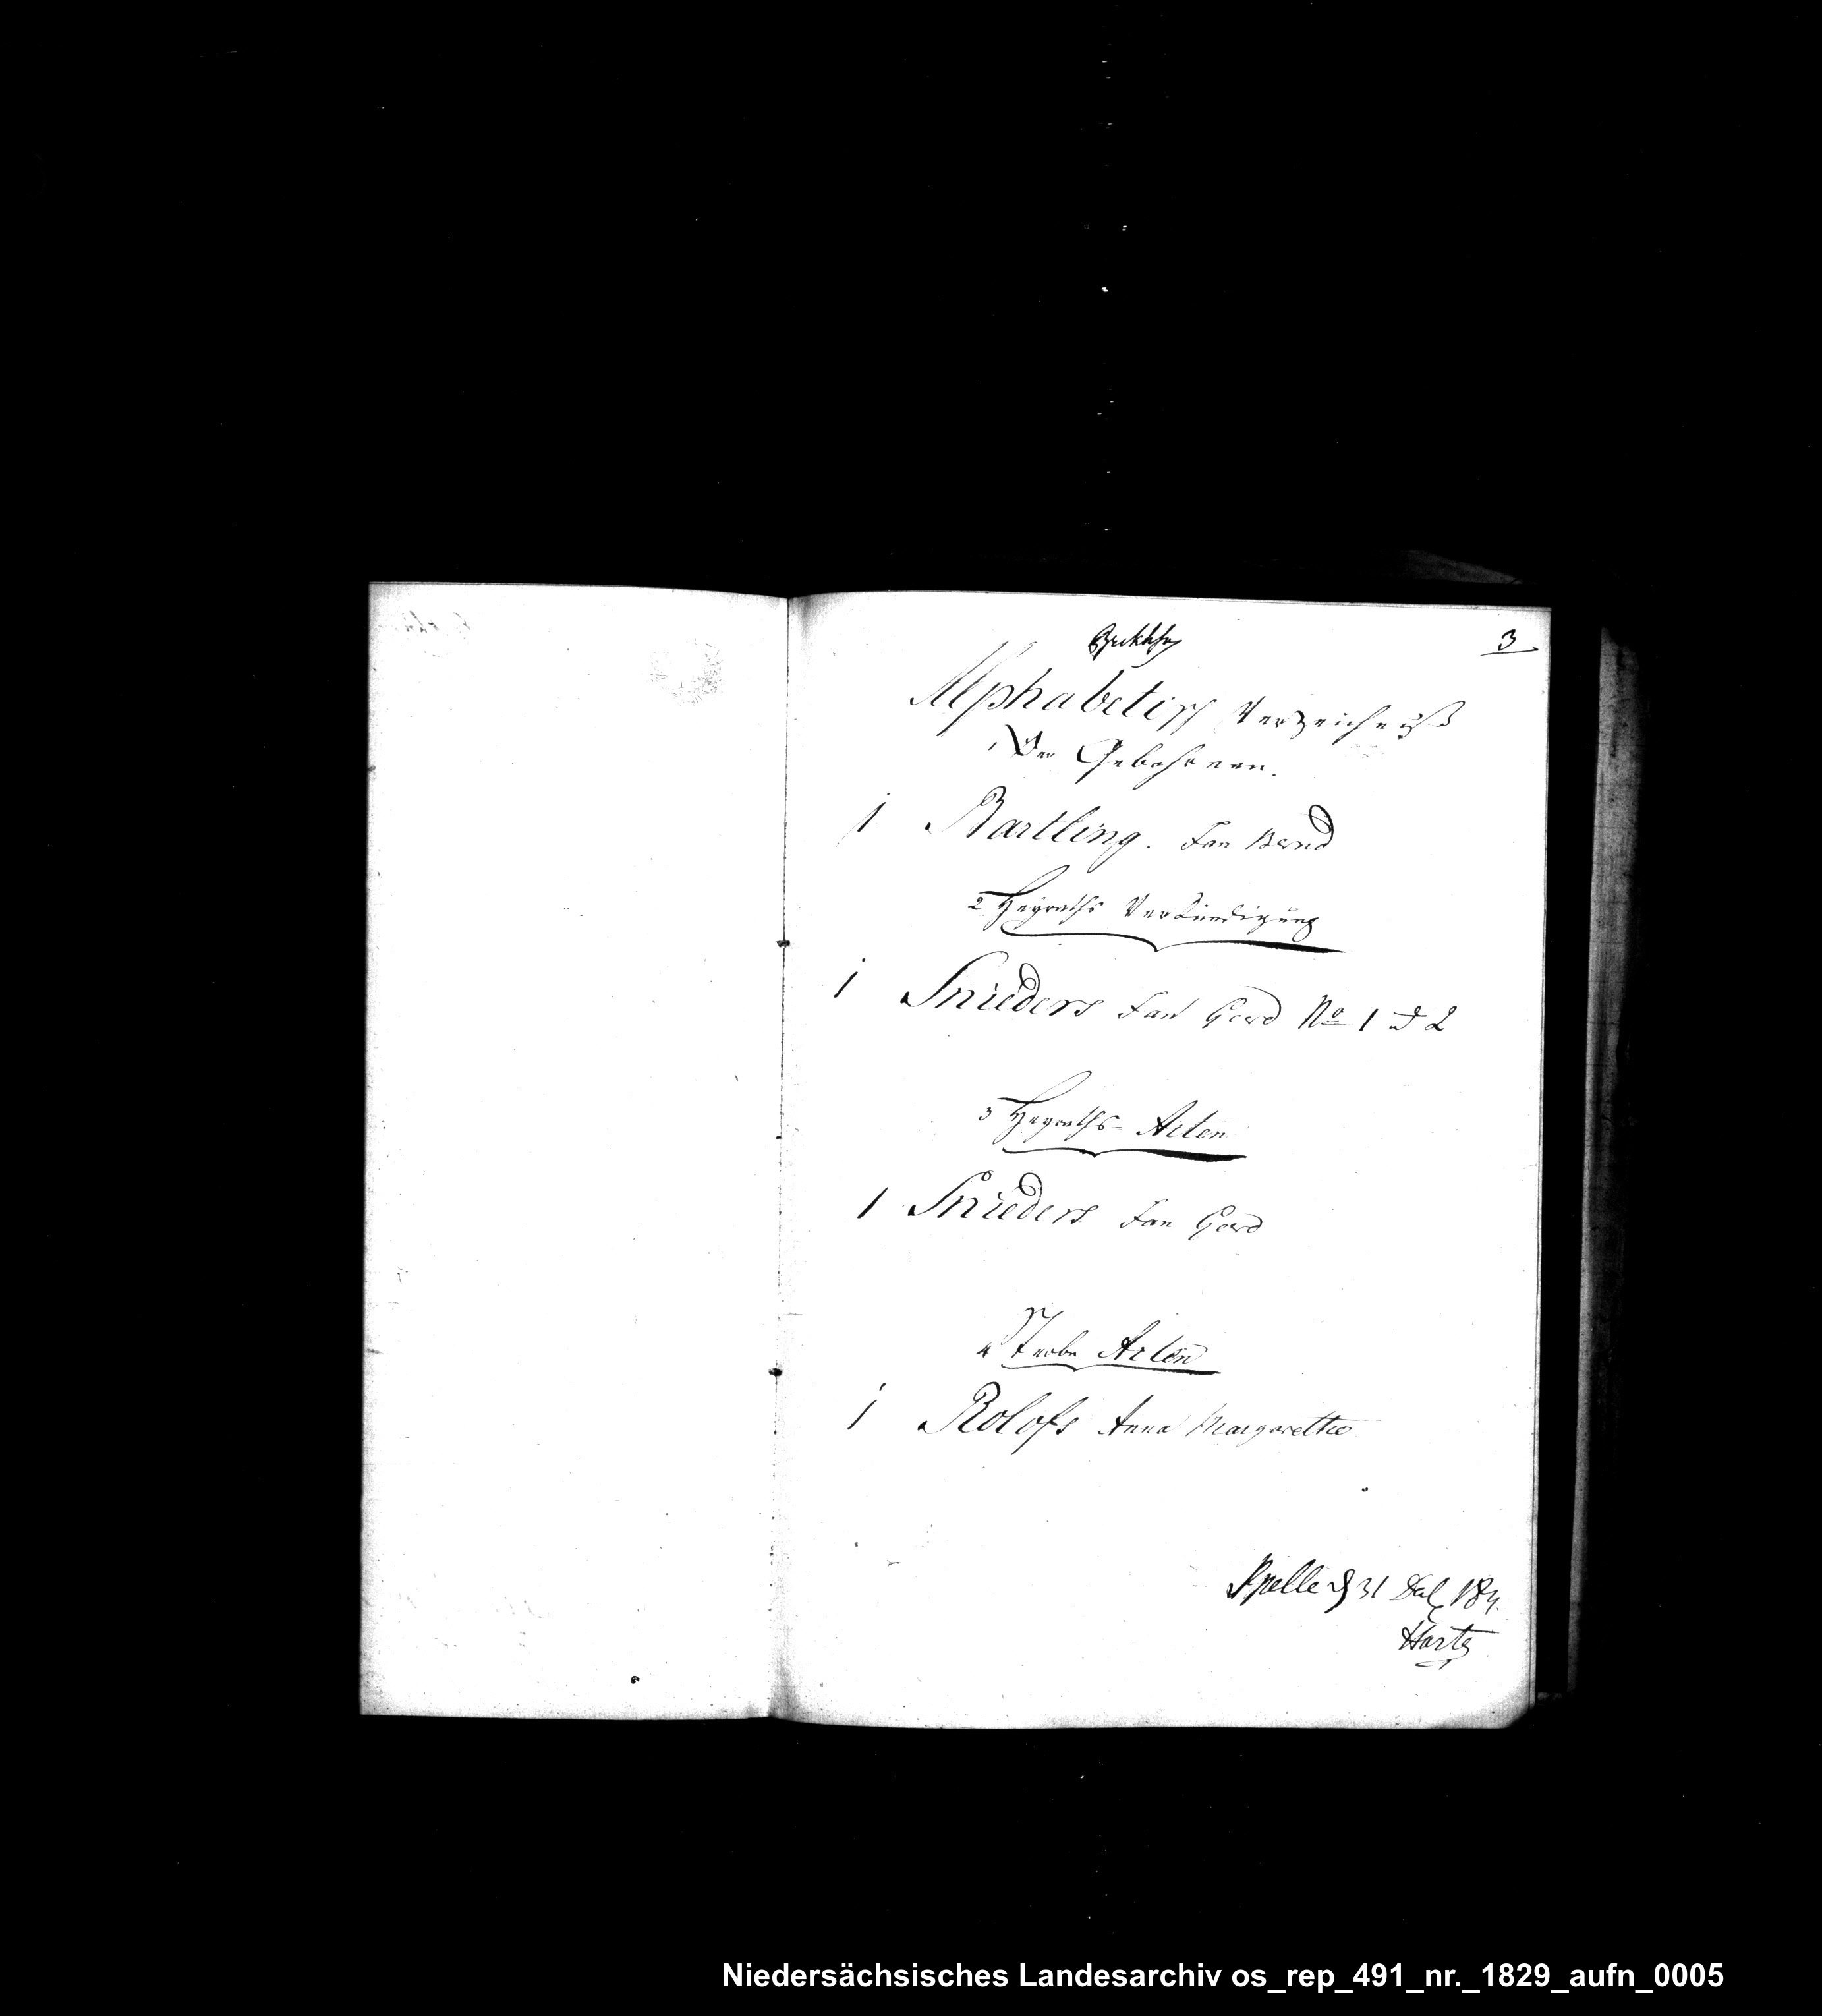 3
Alphabetisch Verzeichniß
1 Der Gebohrnen.
1 Bartling. Jan Bernd
2 Heyraths Verkündigung
1 Snieders Jan Gerd No 1 & 2
3 Heyraths-Acten
1 Snieders Jan Gerd
4 Sterbe Acten
1 Rolofs Anna Margaretha
Spelle d 31
Niedersächsisches Landesarchiv os_rep_491_nr._1829_aufn_0005